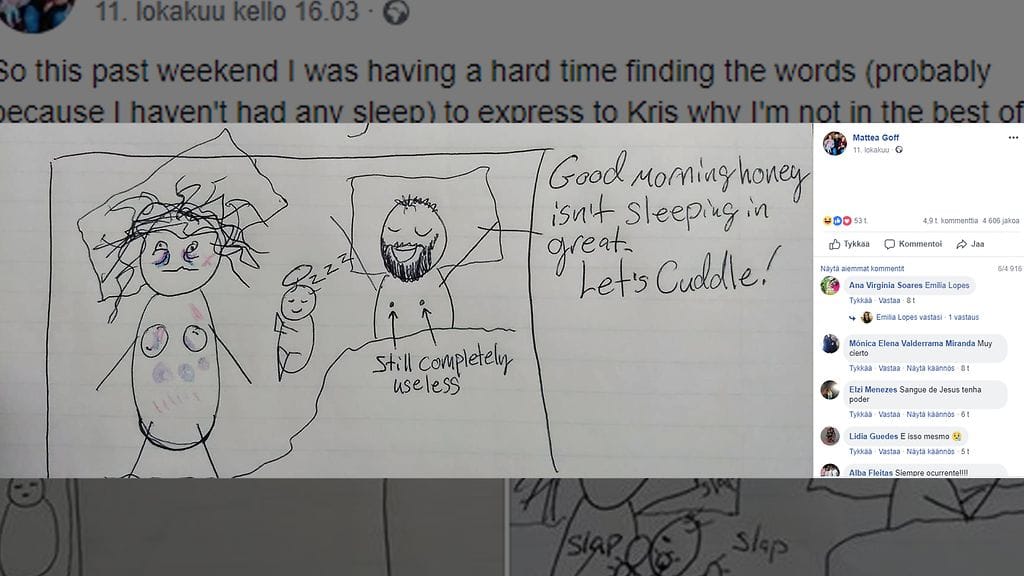 11. lokakuu kello 16.03 ·
So this past weekend I was having a hard time finding the words (probably
because I haven't had any sleep) to express to Kris why I'm not in the best of
Good morning honey
isn't sleeping in
great.
Let's Cuddle!
zzzzz
Still completely
useless
Mattea Goff
11. lokakuu ·
53 t. 4,9 t. kommenttia 4 606 jakoa
Tykkää Kommentoi Jaa
Näytä aiemmat kommentit 6/4 916
Ana Virgínia Soares Emilia Lopes
Tykkää · Vastaa · 8 t
Emilia Lopes vastasi · 1 vastaus
Mónica Elena Valderrama Miranda Muy
cierto
Tykkää · Vastaa · Näytä käännös · 8 t
Elzi Menezes Sangue de Jesus tenha
poder
Tykkää · Vastaa · Näytä käännös · 6 t
Lidia Guedes E isso mesmo 😥
Tykkää · Vastaa · Näytä käännös · 5 t
Alba Fleitas Siempre ocurrente!!!!
slap
Slap
Slap